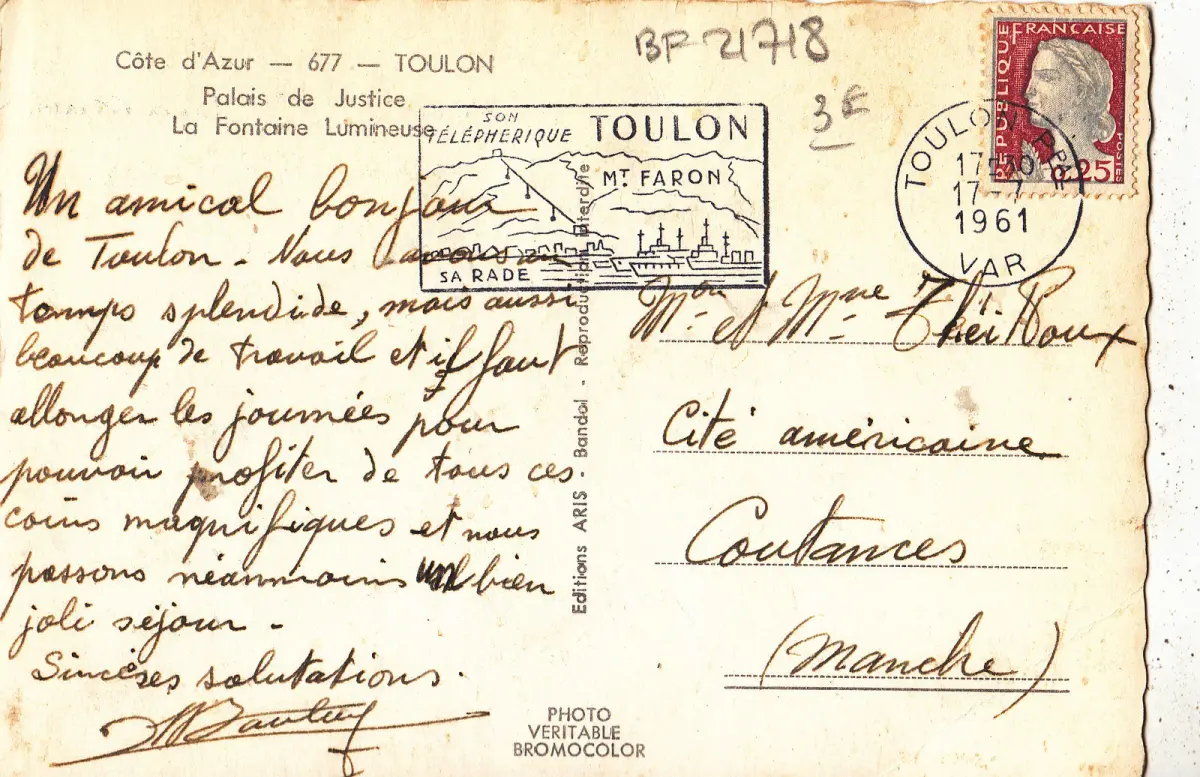 Côte d'Azur — 677 — TOULON
Palais de Justice
La Fontaine Lumineuse
BF 21718
3 €
SON
TÉLÉPHERIQUE TOULON
MT. FARON
SA RADE
RÉPUBLIQUE FRANÇAISE
POSTES
0,25
TOULON PPAL
17H30
17-7
1961
VAR
Un amical bonjour
de Toulon - Nous avons un
temps splendide, mais aussi
beaucoup de travail et il faut
allonger les journées pour
pouvoir profiter de tous ces
coins magnifiques et nous
passons néanmoins un bien
joli séjour -
Sincères salutations.
Editions ARIS - Bandol - Reproduction interdite
Mr et Mme
Cité américaine
Coutances
(Manche)
PHOTO
VERITABLE
BROMOCOLOR